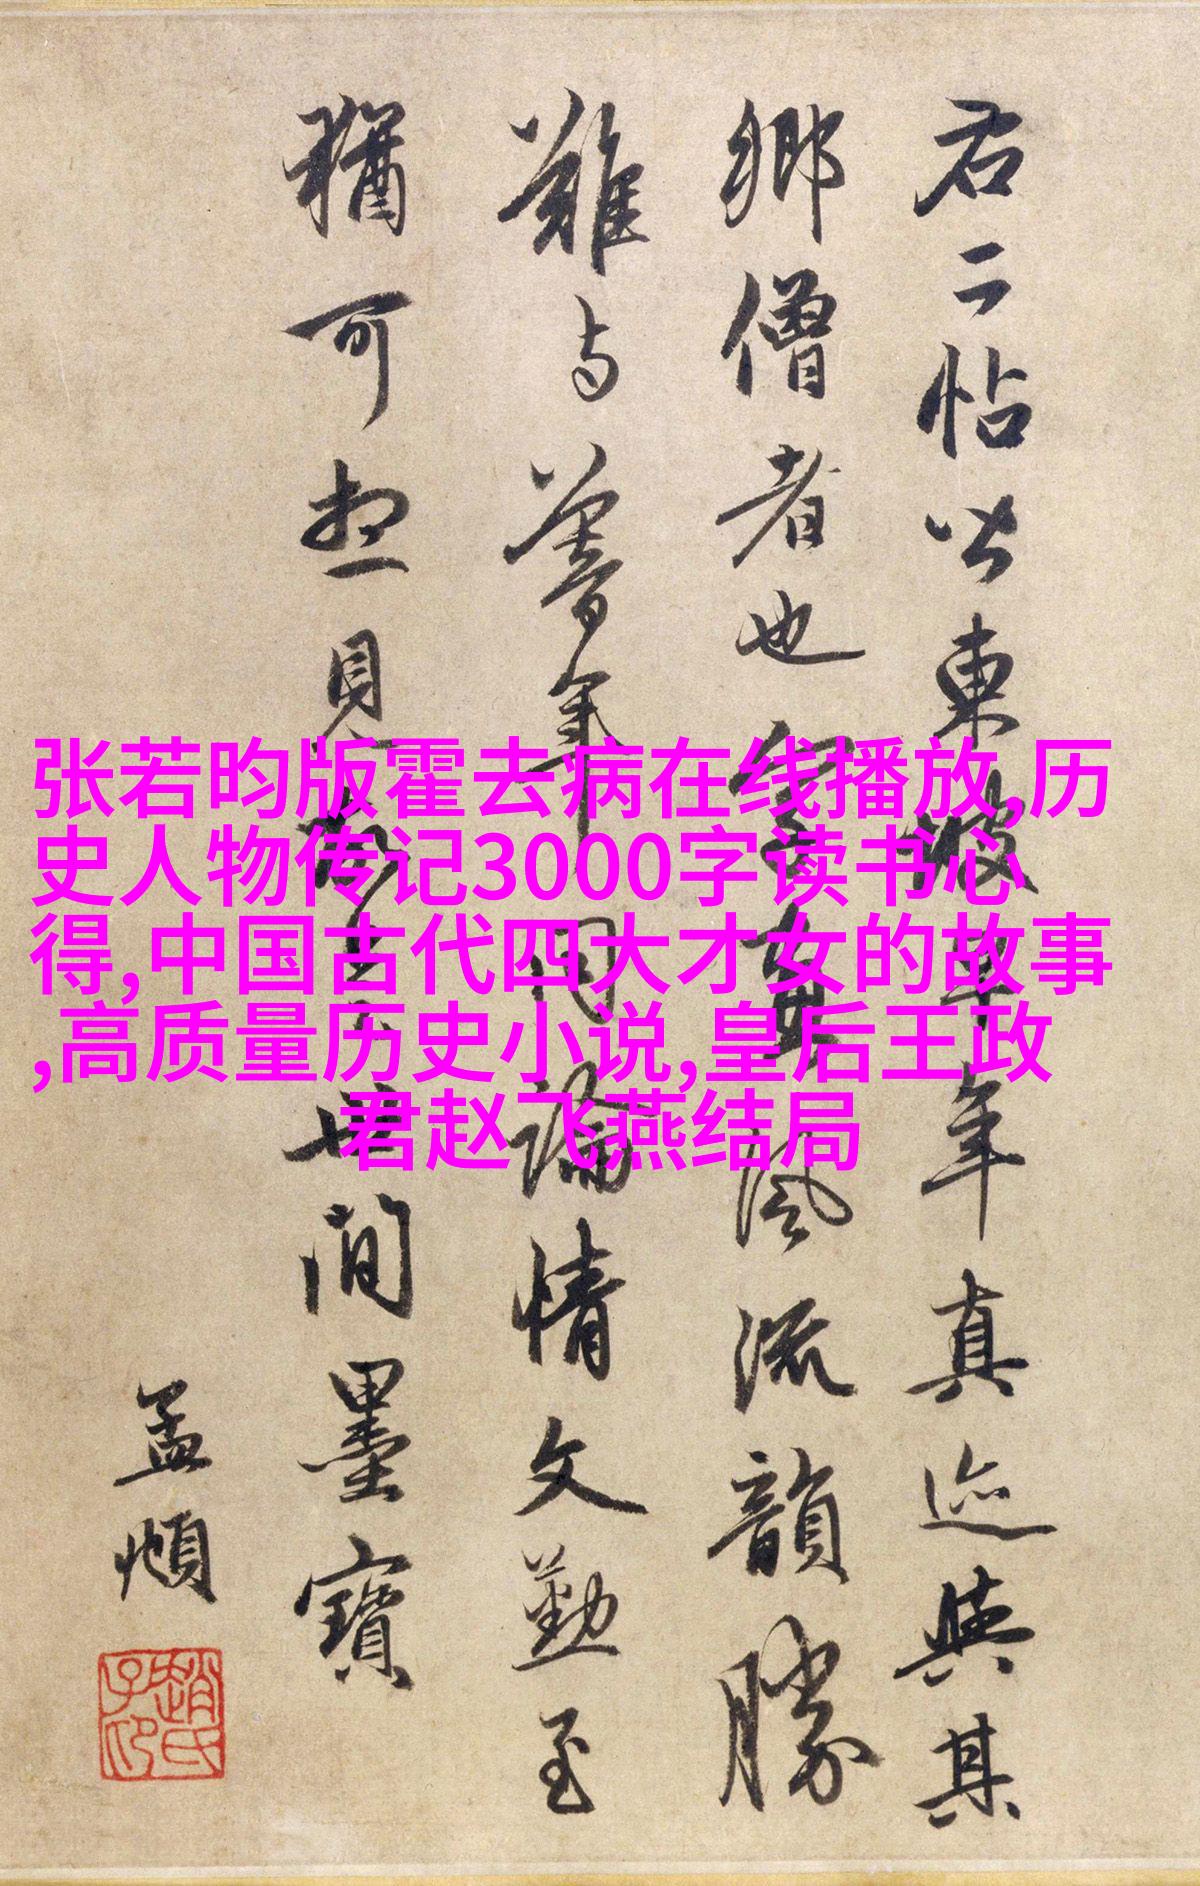 右二帖皆東坡早年真迹與其
鄉僧者也字畫風流韻勝
難与暮年同論情文勤至
猶可想見故是世間墨寶
孟頫
趙氏子昂
张若昀版霍去病在线播放,历
史人物传记3000字读书心
得,中国古代四大才女的故事
,高质量历史小说,皇后王政
君赵飞燕结局